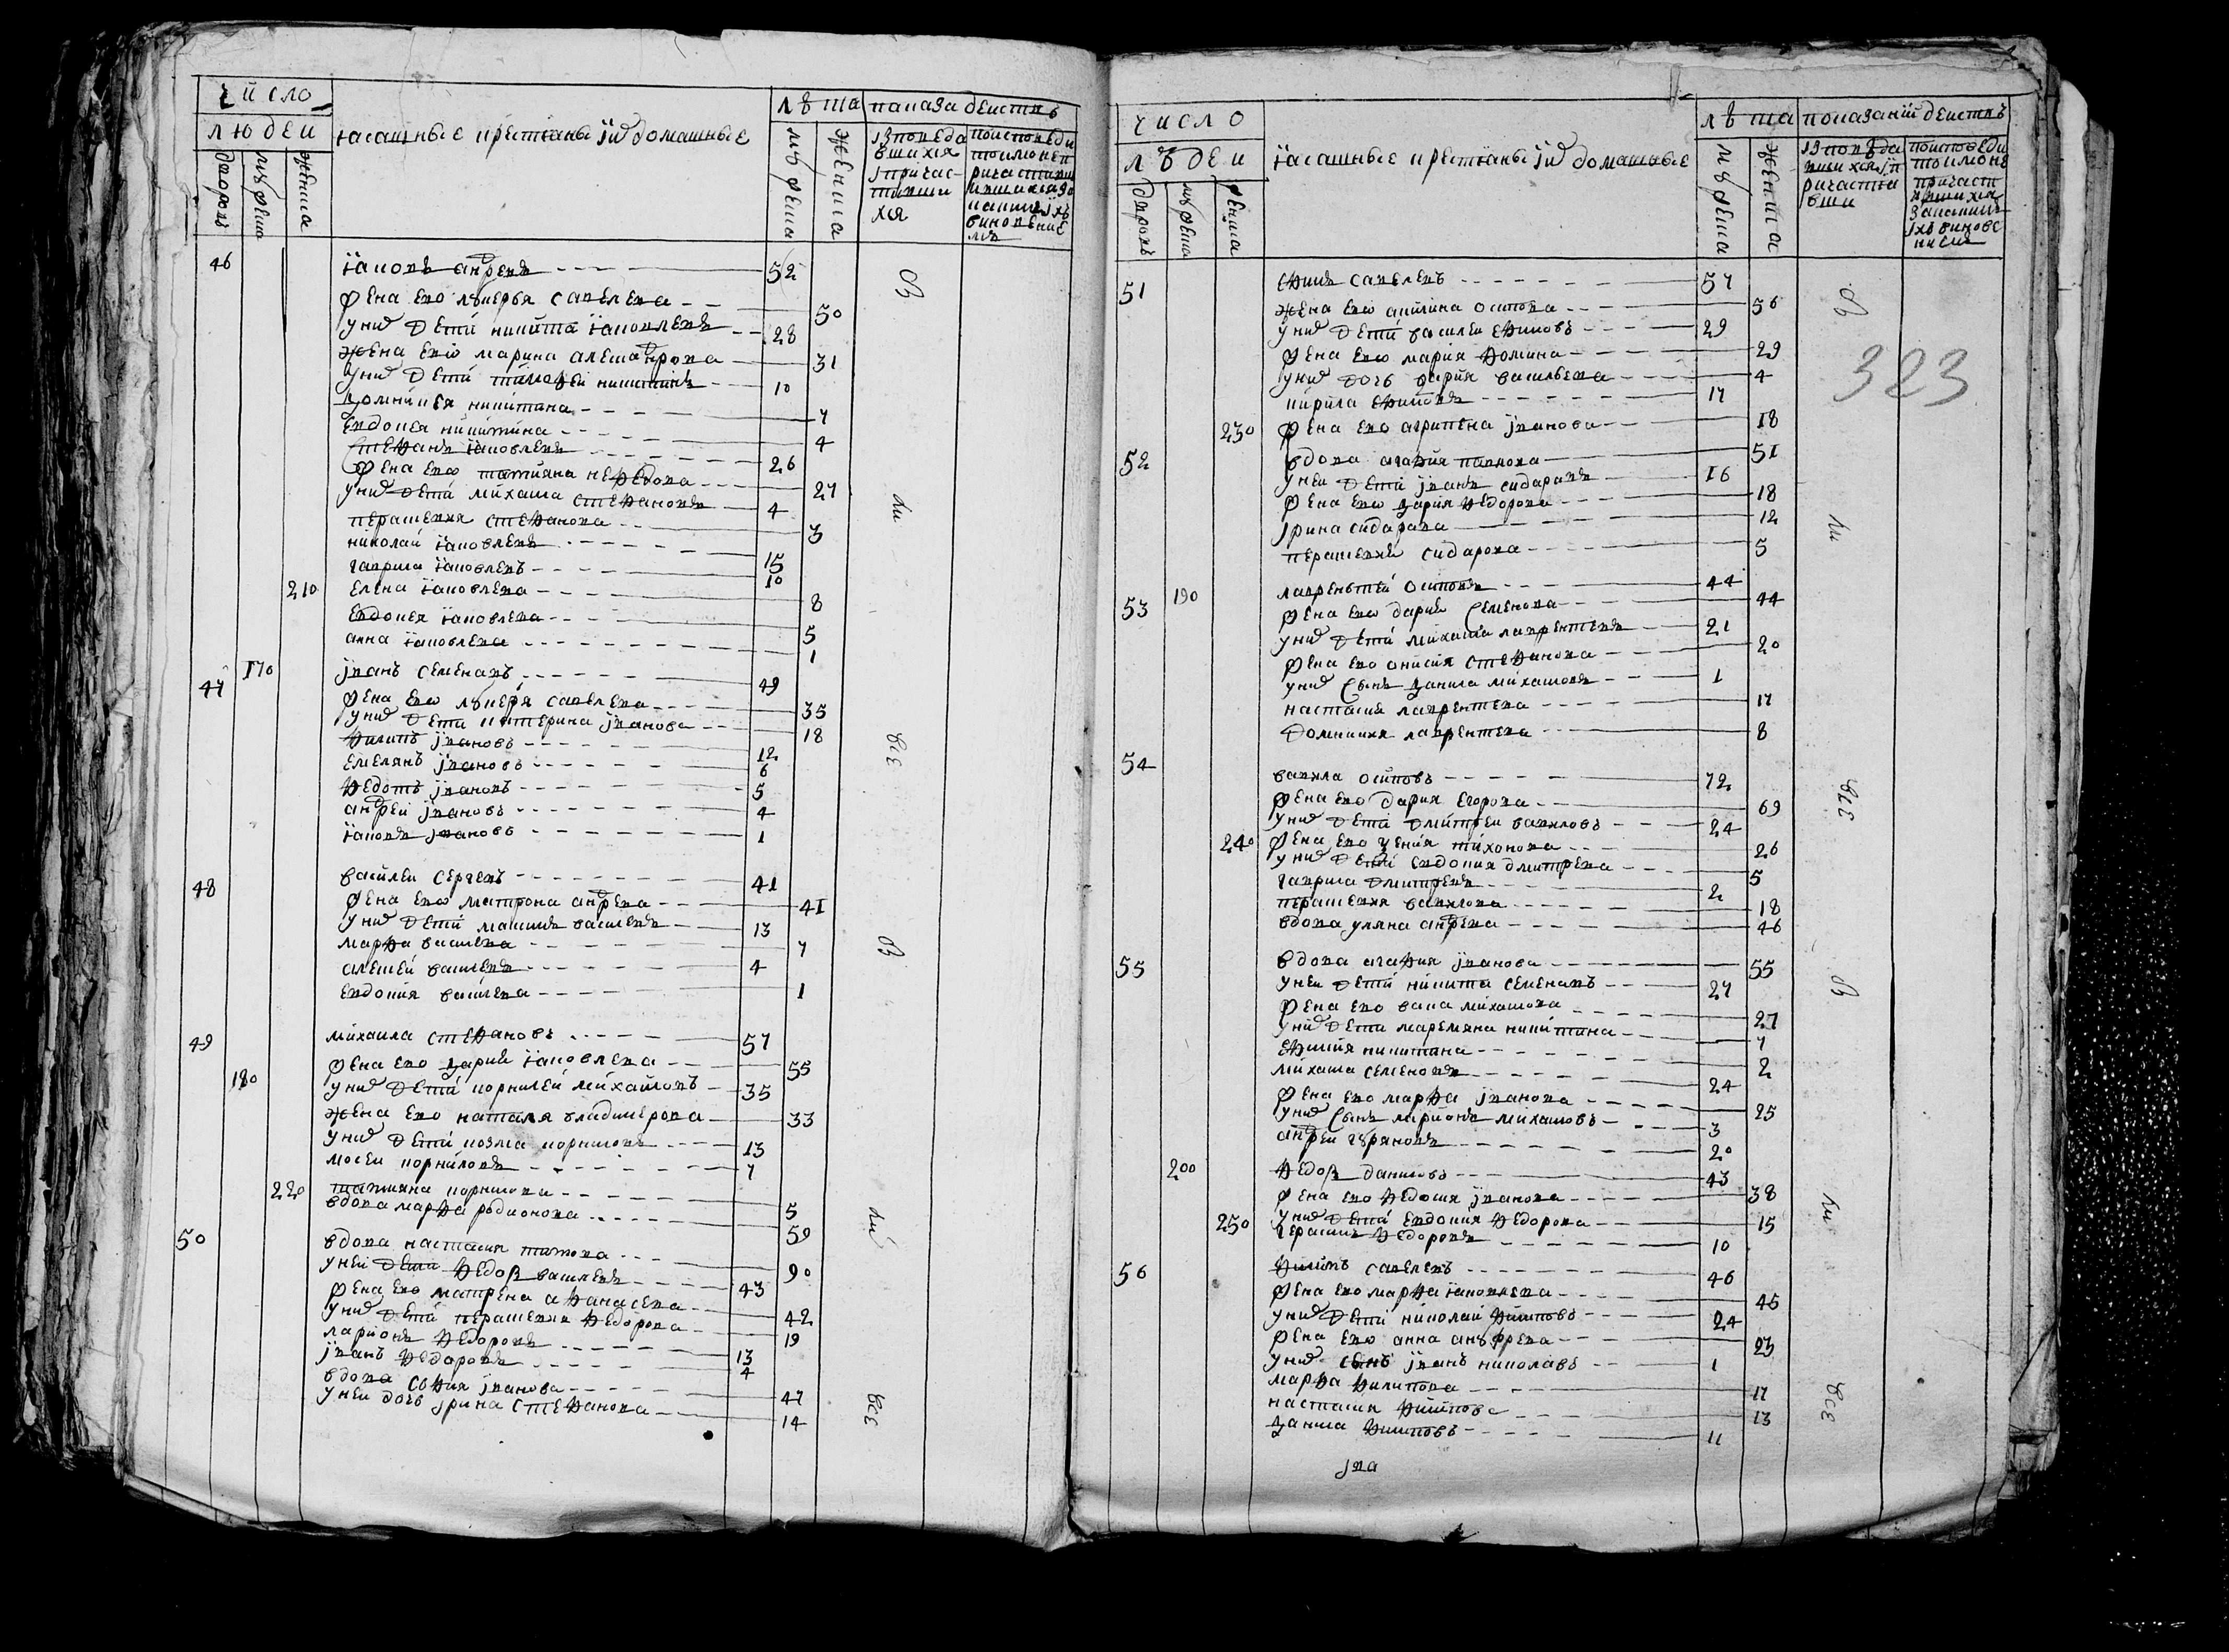 число
людеи
дворовъ
мужеска
женска
ясашные крестьяне и домашные
лѣта
мужеска
женска
показа действъ
46 яковъ андреевъ 52
жена ево лукерья савелева 50
у них дети никита яковлевъ 28
жена ево марина александрова 31
у них дети тимофеи никитинъ 10
домникея никитина 7
евдокея никитина 4
степанъ яковлевъ 26
жена ево татияна нефедова 27
у них дети михаила степановъ 4
парасковия степанова 3
николаи яковлевъ 15
гаврила яковлевъ 10
210 елена яковлева 8
евдокея яковлева 5
анна яковлева 1
47 170 иванъ семенавъ 49
жена ево лукеря савелева 35
у них дети катерина иванова 18
филипъ ивановъ 12
емелянъ ивановъ 6
федотъ ивановъ 5
андреи ивановъ 4
яковъ ивановъ 1
48 василеи сергеевъ 41
жена ево матрона андрева 41
у них дети максимъ василевъ 13
марфа василева 7
алексеи василевъ 4
евдокия василева 1
49 михаила степановъ 57
жена ево дария яковлева 55
180 у них дети корнилеи михаиловъ 35
жена ево наталя владимерова 33
у них дети козма корниловъ 13
мосеи корниловъ 7
220 татияна корнилова 5
вдова марфа родионова 59
50 вдова настасия титова 90
у неи дети федоръ василевъ 43
жена ево матрена афанасева 42
у них дети парасковия федорова 19
ларионъ федоровъ 13
иванъ федоровъ 4
вдова софия иванова 47
у неи дочь ирина степанова 14
вси
все
вси
все
число
людеи
дворовъ
мужеска
женска
ясашные крестьяне и домашные
лѣта
мужеска
женска
показании действъ
323
51 ефимъ савелевъ 57
жена ево акилина осипова 56
у них дети василеи ефимовъ 29
жена ево мария фомина 29
у них дочь дария васильева 4
кирила ефимовъ 17
230 жена ево агрипена иванова 18
52 вдова агафия павлова 51
у неи дети иванъ сидаравъ 16
жена ево дария федорова 18
ирина сидарава 12
парасковия сидарова 5
53 190 лаврентеи осиповъ 44
жена ево дария семенова 44
у них дети михаила лаврентевъ 21
жена ево онисия степанова 20
у них сынъ данила михаиловъ 1
настасия лаврентева 17
домникия лаврентева 8
54 вавила осиповъ 72
жена ево дария егорова 69
у них дети дмитреи вавиловъ 24
240 жена ево ксения тихонова 26
у них дети евдокия дмитрева 5
гаврила дмитревъ 2
парасковия вавилова 18
вдова уляна андрева 46
55 вдова агафия иванова 55
у неи дети никита семенавъ 27
жена ево васа михаилова 27
у них дети маремяна никитина 7
ефимия никитина 2
михаила семеновъ 24
жена ево марфа иванова 25
у них сынъ ларионъ михаиловъ 3
андреи гуряновъ 20
200 федоръ даниловъ 43
жена ево федосия иванова 38
250 у них дети евдокия федорова 15
герасимъ федоровъ 10
56 филипъ савелевъ 46
жена ево марфа яковлева 45
у них дети николаи филиповъ 24
жена ево анна андрева 23
у них сынъ иванъ николавъ 1
марфа филипова 17
настасия филипова 13
данила филиповъ 11
ива
вси
все
вси
все